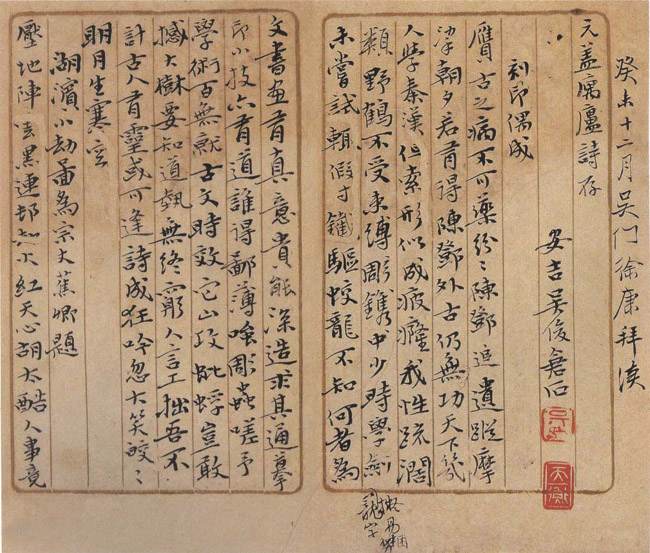 癸未十二月吳門徐康拜讀
元蓋寓廬詩存
安吉吳俊倉石
刻印偶成
贋古之病不可藥紛〻陳鄧追遺蹤摩
挲朝夕若有得陳鄧外古仍無功天下幾
人學秦漢但索形似成疲癃我性疏闊
類野鶴不受束縛彫鐫中少時學劍
未嘗試輒假寸鐵驅蛟龍不知何者為
文書畫有真意貴能深造求其通摹
印小技亦有道誰得鄙薄嗤彫蟲嗟予
學術古無就古文時效它山攻蚍蜉豈敢
撼大樹要知道藝無終窮人言工拙吾不
計古人有靈或可逢詩成狂吟忽大笑皎〻
明月生寒空
湖濱小劫圖為宗大蕉卿題
壓地陣雲黑連邨火紅天心胡太酷人事竟
龍字